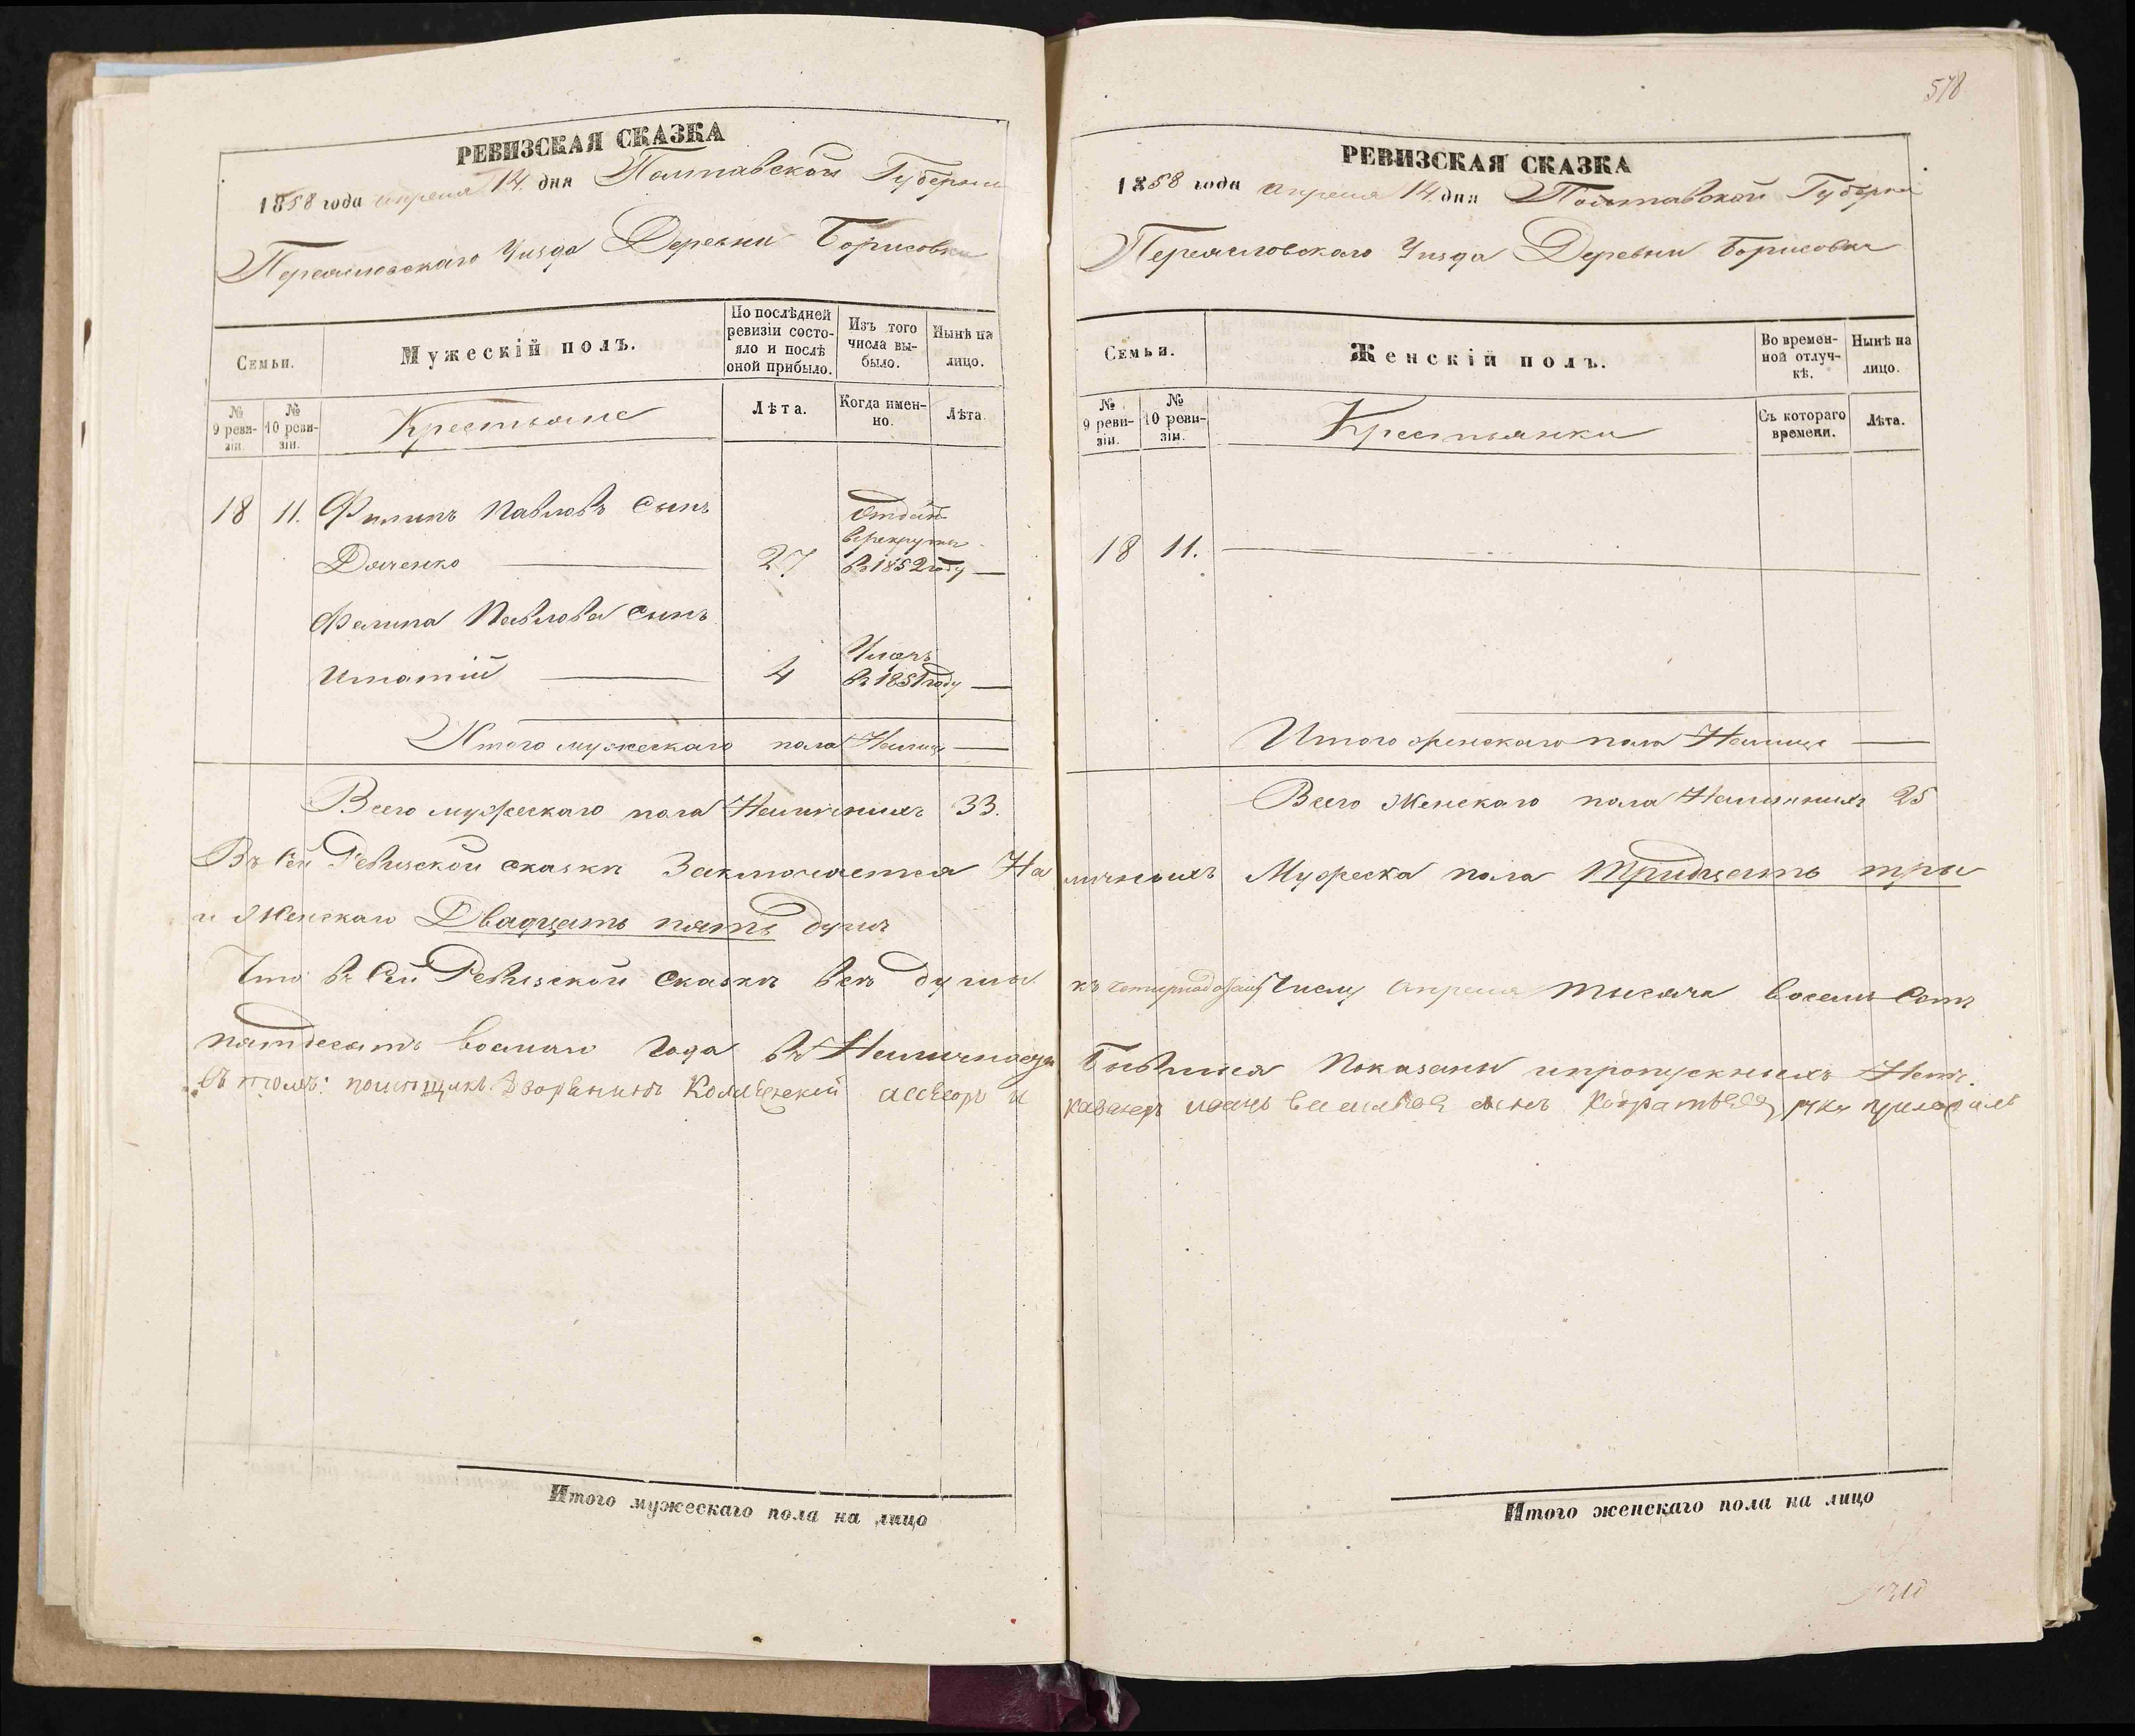 578
РЕВИЗСКАЯ СКАЗКА
1858 года апреля 14 дня Полтавской Губернии
Переясловского Уизда Деревни Борисовки
Семьи.
Мужескій полъ.
По послѣдней ревизіи состояло и послѣ оной прибыло.
Изъ того числа выбыло.
Нынѣ на лицо.
№ 9 ревизіи.
№ 10 ревизіи.
Крестьяне
Лѣта.
Когда именно.
Лѣта.
18 11. Филипъ Павловъ Сынъ
Отданъ
в рекруты
Дяченко 27 въ 1852 году —
Филипа Павлова Сынъ
Игнатій 4
Умеръ
въ 1851 году —
Итого мужескаго пола Налицо —
Всего мужескаго пола Наличныхъ 33.
РЕВИЗСКАЯ СКАЗКА
1858 года апреля 14 дня Полтавской Губерніи
Переясловского Уизда Деревни Борисовки
Семьи.
Женскій полъ.
Во временной отлучкѣ.
Нынѣ на лицо.
№ 9 ревизіи.
№ 10 ревизіи.
Крестьянки
Съ котораго времени.
Лѣта.
18 11.
Итого женскаго пола Налицо —
Всего Женскаго пола Наличныхъ 25
Въ сей Ревизской сказкѣ Заключается Наличныхъ Мужеска пола Тридцать три
и Женскаго Двадцать пять душъ
Что въ Сей Ревизской Сказкѣ всѣ души къ Числу апреля тысяча восемь Сотъ
пятдесятъ восмаго Года въ Бывшия Показаны и пропускныхъ Нетъ.
въ томъ: помещикъ дворянинъ Коллежской асесоръ и сынъ руку приложилъ
Итого мужескаго пола на лицо
Итого женскаго пола на лицо